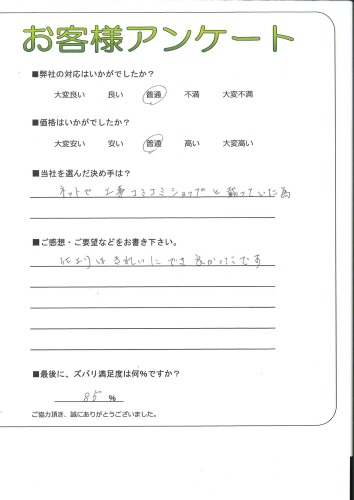 お客様アンケート
■弊社の対応はいかがでしたか？
大変良い 良い 普通 不満 大変不満
■価格はいかがでしたか？
大変安い 安い 普通 高い 大変高い
■当社を選んだ決め手は？
ネットで 工事コミコミショップと 載っていた為
■ご感想・ご要望などをお書き下さい。
はきれいにでき良かったです
■最後に、ズバリ満足度は何％ですか？
85 %
ご協力頂き、誠にありがとうございました。